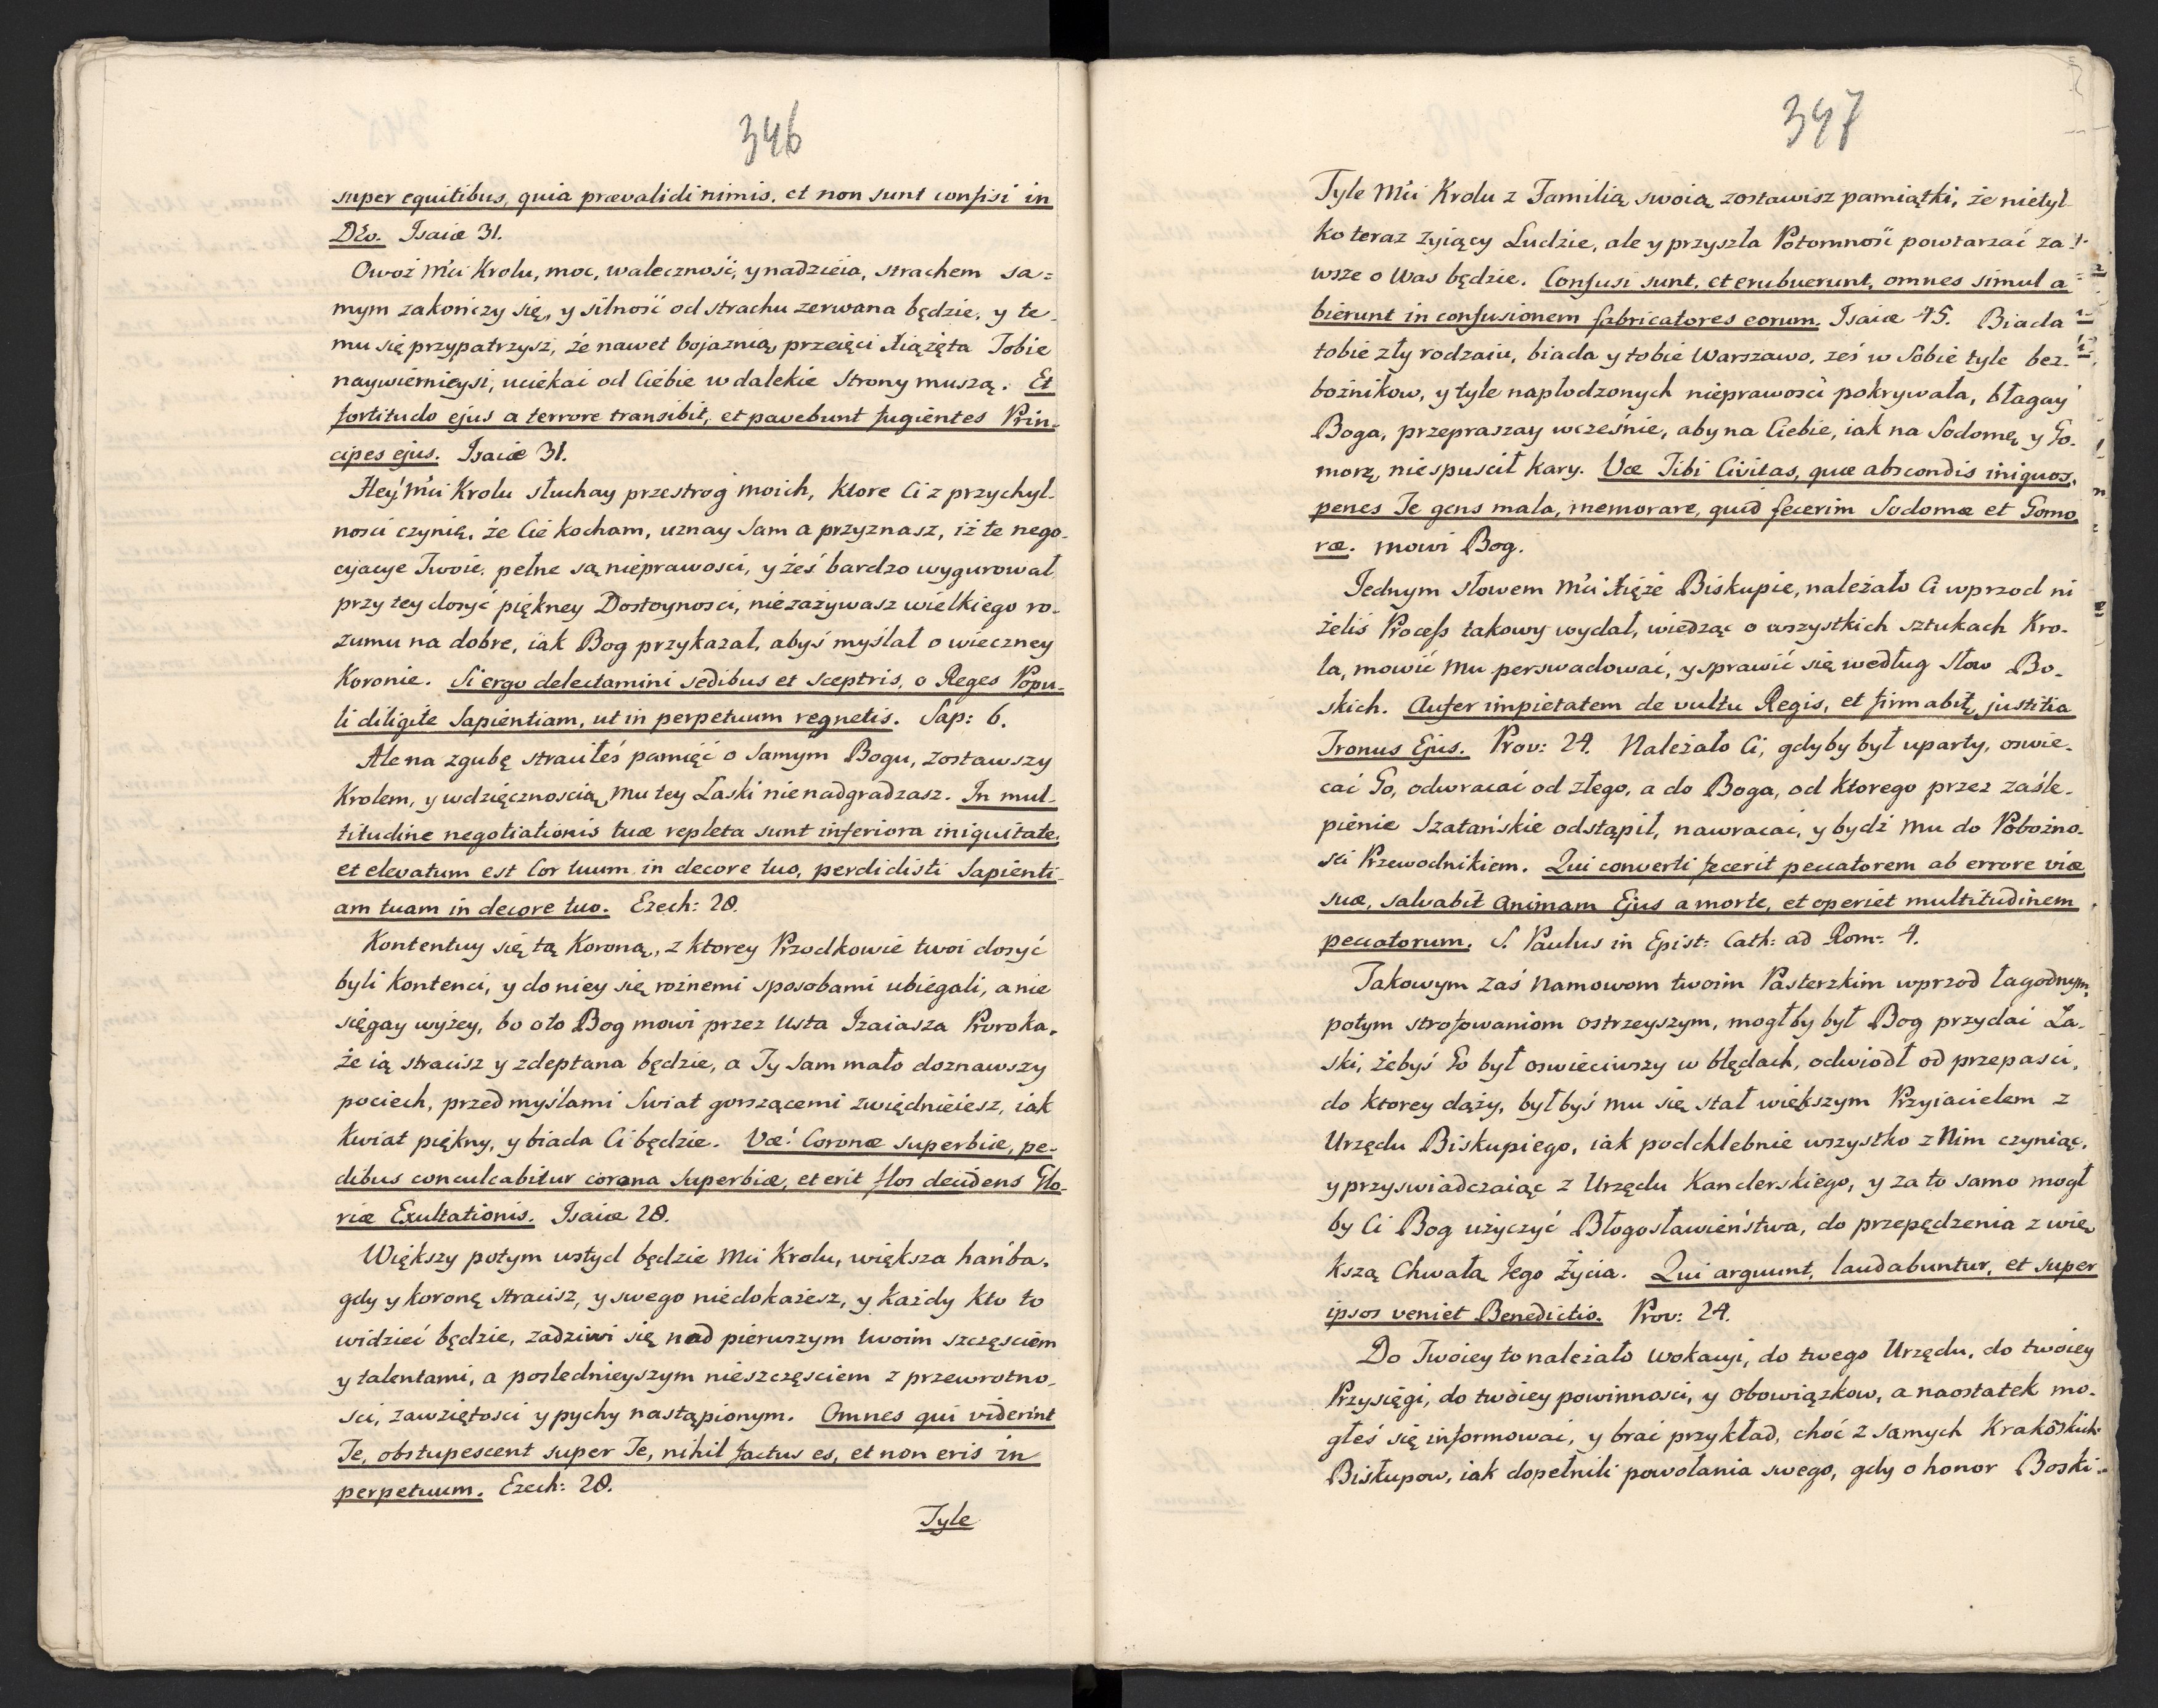 346
super equitibus, quia prævalidi nimis, et non sunt confisi in
DEo. Isaiæ 31.
Owoż Mći Krolu, moc, waleczność, y nadzieia, strachem sa=
mym zakończy się, y silność od strachu zerwana będzie, y te-
mu się przypatrzysz, że nawet bojaznią przeięci Xiążęta Tobie
naywiernieysi, uciekać od Ciebie w dalekie Strony muszą. Et
fortitudo ejus a terrore transibit, et pavebunt fugientes Prin-
cipes ejus. Isaiæ 31.
Hey Mći Krolu słuchay przestrog moich, ktore Ci z przychyl-
nosci czynię, że Cię kocham, uznay Sam a przyznasz, iż te nego-
cyacye Twoie, pełne są nieprawosci, y żeś bardzo wygurował
przy tey dosyć piękney Dostoynosci, niezażywasz wielkiego ro-
zumu na dobre, iak Bog przykazał, abyś myślał o wieczney
Koronie. Si ergo delectamini sedibus et sceptris, o Reges Popu-
li diligite Sapientiam, ut in perpetuum regnetis. Sap: 6.
Ale na zgubę straciłeś pamięć o Samym Bogu, zostawszy
Krolem, y wdzięcznoscią Mu tey Łaski nienadgradzasz. In mul-
titudine negotiationis tuæ repleta sunt inferiora iniquitate,
et elevatum est Cor tuum in decore tuo, perdidisti Sapienti-
am tuam in decore tuo. Ezech: 28.
Kontentuy się tą Koroną, z ktorey Przodkowie twoi dosyć
byli kontenci, y do niey się rożnemi sposobami ubiegali, a nie
sięgay wyżey, bo oto Bog mowi przez Usta Izaiasza Proroka,
że ią stracisz y zdeptana będzie, a Ty Sam mało doznawszy
pociech, przed myślami Swiat gorszącemi zwiędnieiesz, iak
Kwiat piękny, y biada Ci będzie. Væ! Coronæ superbiæ, pe-
dibus conculcabitur corona Superbiæ, et erit flos decidens Glo-
riæ Exultationis. Isaiæ 28.
Większy potym wstyd będzie Mći Krolu, większa hańba,
gdy y koronę stracisz, y swego niedokażesz, y każdy kto to
widzieć będzie, zadziwi się nad pierwszym twoim szczęściem
y talentami, a poslednieyszym nieszczęsciem z przewrotno-
sci, zawziętosci y pychy nastąpionym. Omnes qui viderint
Te, obstupescent super Te, nihil factus es, et non eris in
perpetuum. Ezech: 28.
Tyle
347
Tyle Mći Krolu z Familią swoią zostawisz pamiątki, że nietyl-
ko teraz żyiący Ludzie, ale y przyszła Potomność powtarzać za-
wsze o Was będzie. Confusi sunt, et erubuerunt, omnes simul a-
bierunt in confusionem fabricatores eorum. Isaiæ 45. Biada
tobie zły rodzaiu, biada y tobie Warszawo, żeś w Sobie tyle bez-
bożnikow, y tyle napłodzonych nieprawosci pokrywała, błagay
Boga, przepraszay wcześnie, aby na Ciebie, iak na Sodomę y Go-
morę, niespuscił kary. Væ Tibi Civitas, quæ abscondis iniquos,
penes Te gens mala, memorare, quid fecerim Sodomæ et Gomo
ræ. mowi Bog.
Jednym Słowem Mći Xięże Biskupie, należało Ci wprzod ni
żeliś Process takowy wydał, wiedząc o wszystkich sztukach Kro-
la, mowić Mu perswadować, y sprawić się według Słow Bo-
skich. Aufer impietatem de vultu Regis, et firmabit, justitia
Tronus Ejus. Prov: 24. Należało Ci, gdyby był uparty, oswie-
cać Go, odwracać od złego, a do Boga, od ktorego przez zaśle-
pienie Szatańskie odstąpił, nawracać, y bydź Mu do Pobożno-
sci Przewodnikiem. Qui converti fecerit peccatorem ab errore viæ
suæ, salvabit Animam Ejus a morte, et operiet multitudinem
peccatorum. S. Paulus in Epist: Cath: ad Rom: 4.
Takowym zaś namowom twoim Pasterzkim wprzod łagodnym,
potym strofowaniom ostrzeyszym, mogłby był Bog przydać Ła-
ski, żebyś Go był oswieciwszy w błędach, odwiodł od przepasci,
do ktorey dąży, byłbyś mu się stał większym Przyiacielem z
Urzędu Biskupiego, iak podchlebnie wszystko z Nim czyniąc,
y przyswiadczaiąc z Urzędu Kanclerskiego, y za to samo mogł
by Ci Bog użyczyć Błogosławieństwa, do przepędzenia z wię
kszą Chwałą Jego Życia. Qui arguunt, laudabuntur, et super
ipsos veniet Benedictio. Prov: 24.
Do Twoiey to należało Wokacyi, do twego Urzędu, do twoiey
Przysięgi, do twoiey powinnosci, y Obowiązkow, a naostatek mo-
głeś się informować, y brać przykład, choć z samych Krakoskich
Biskupow, iak dopełnili powołania swego, gdy o honor Boski